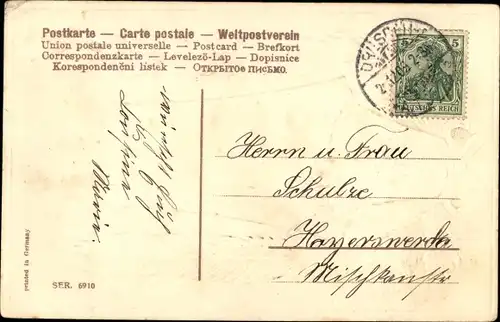 Postkarte — Carte postale — Weltpostverein
Union postale universelle — Postcard — Brefkort
Correspondenzkarte — Levelező-Lap — Dopisnice
Korespondenčni lístek — Открытое письмо.
5
DEUTSCHES REICH
wünscht Euch
Maria.
Herrn u. Frau
Schulze
Hoyerswerda
printed in Germany
SER. 6910